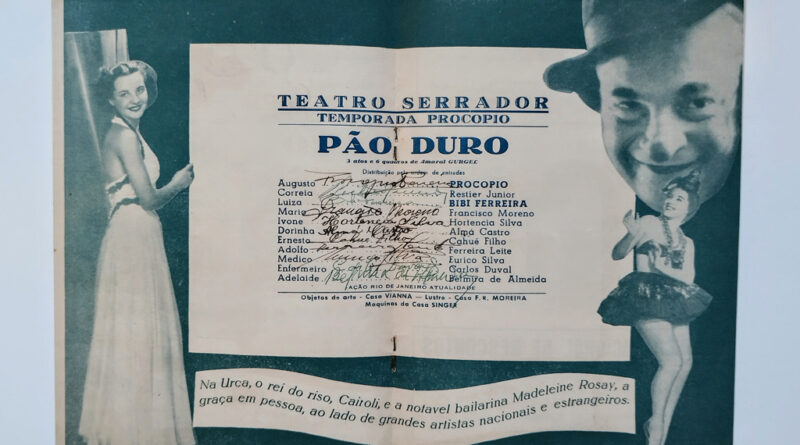 TEATRO SERRADOR
TEMPORADA PROCOPIO
PÃO DURO
3 atos e 6 quadros de Amaral GURGEL
Distribuição pela ordem de entradas
Augusto PROCOPIO
Correia Restier Junior
Luiza BIBI FERREIRA
Mario Francisco Moreno Francisco Moreno
Ivone Hortencia Silva Hortencia Silva
Dorinha Alma Castro Alma Castro
Ernesto Cahué Filho Cahué Filho
Adolfo Ferreira Leite
Medico Eurico Silva
Enfermeiro Carlos Duval
Adelaide Belmira de Almeida
AÇÃO RIO DE JANEIRO ATUALIDADE
Objetos de arte - Casa VIANNA - Lustre - Casa F. R. MOREIRA
Maquinas da Casa SINGER
Na Urca, o rei do riso, Cairoli, e a notavel bailarina Madeleine Rosay, a
graça em pessoa, ao lado de grandes artistas nacionais e estrangeiros.